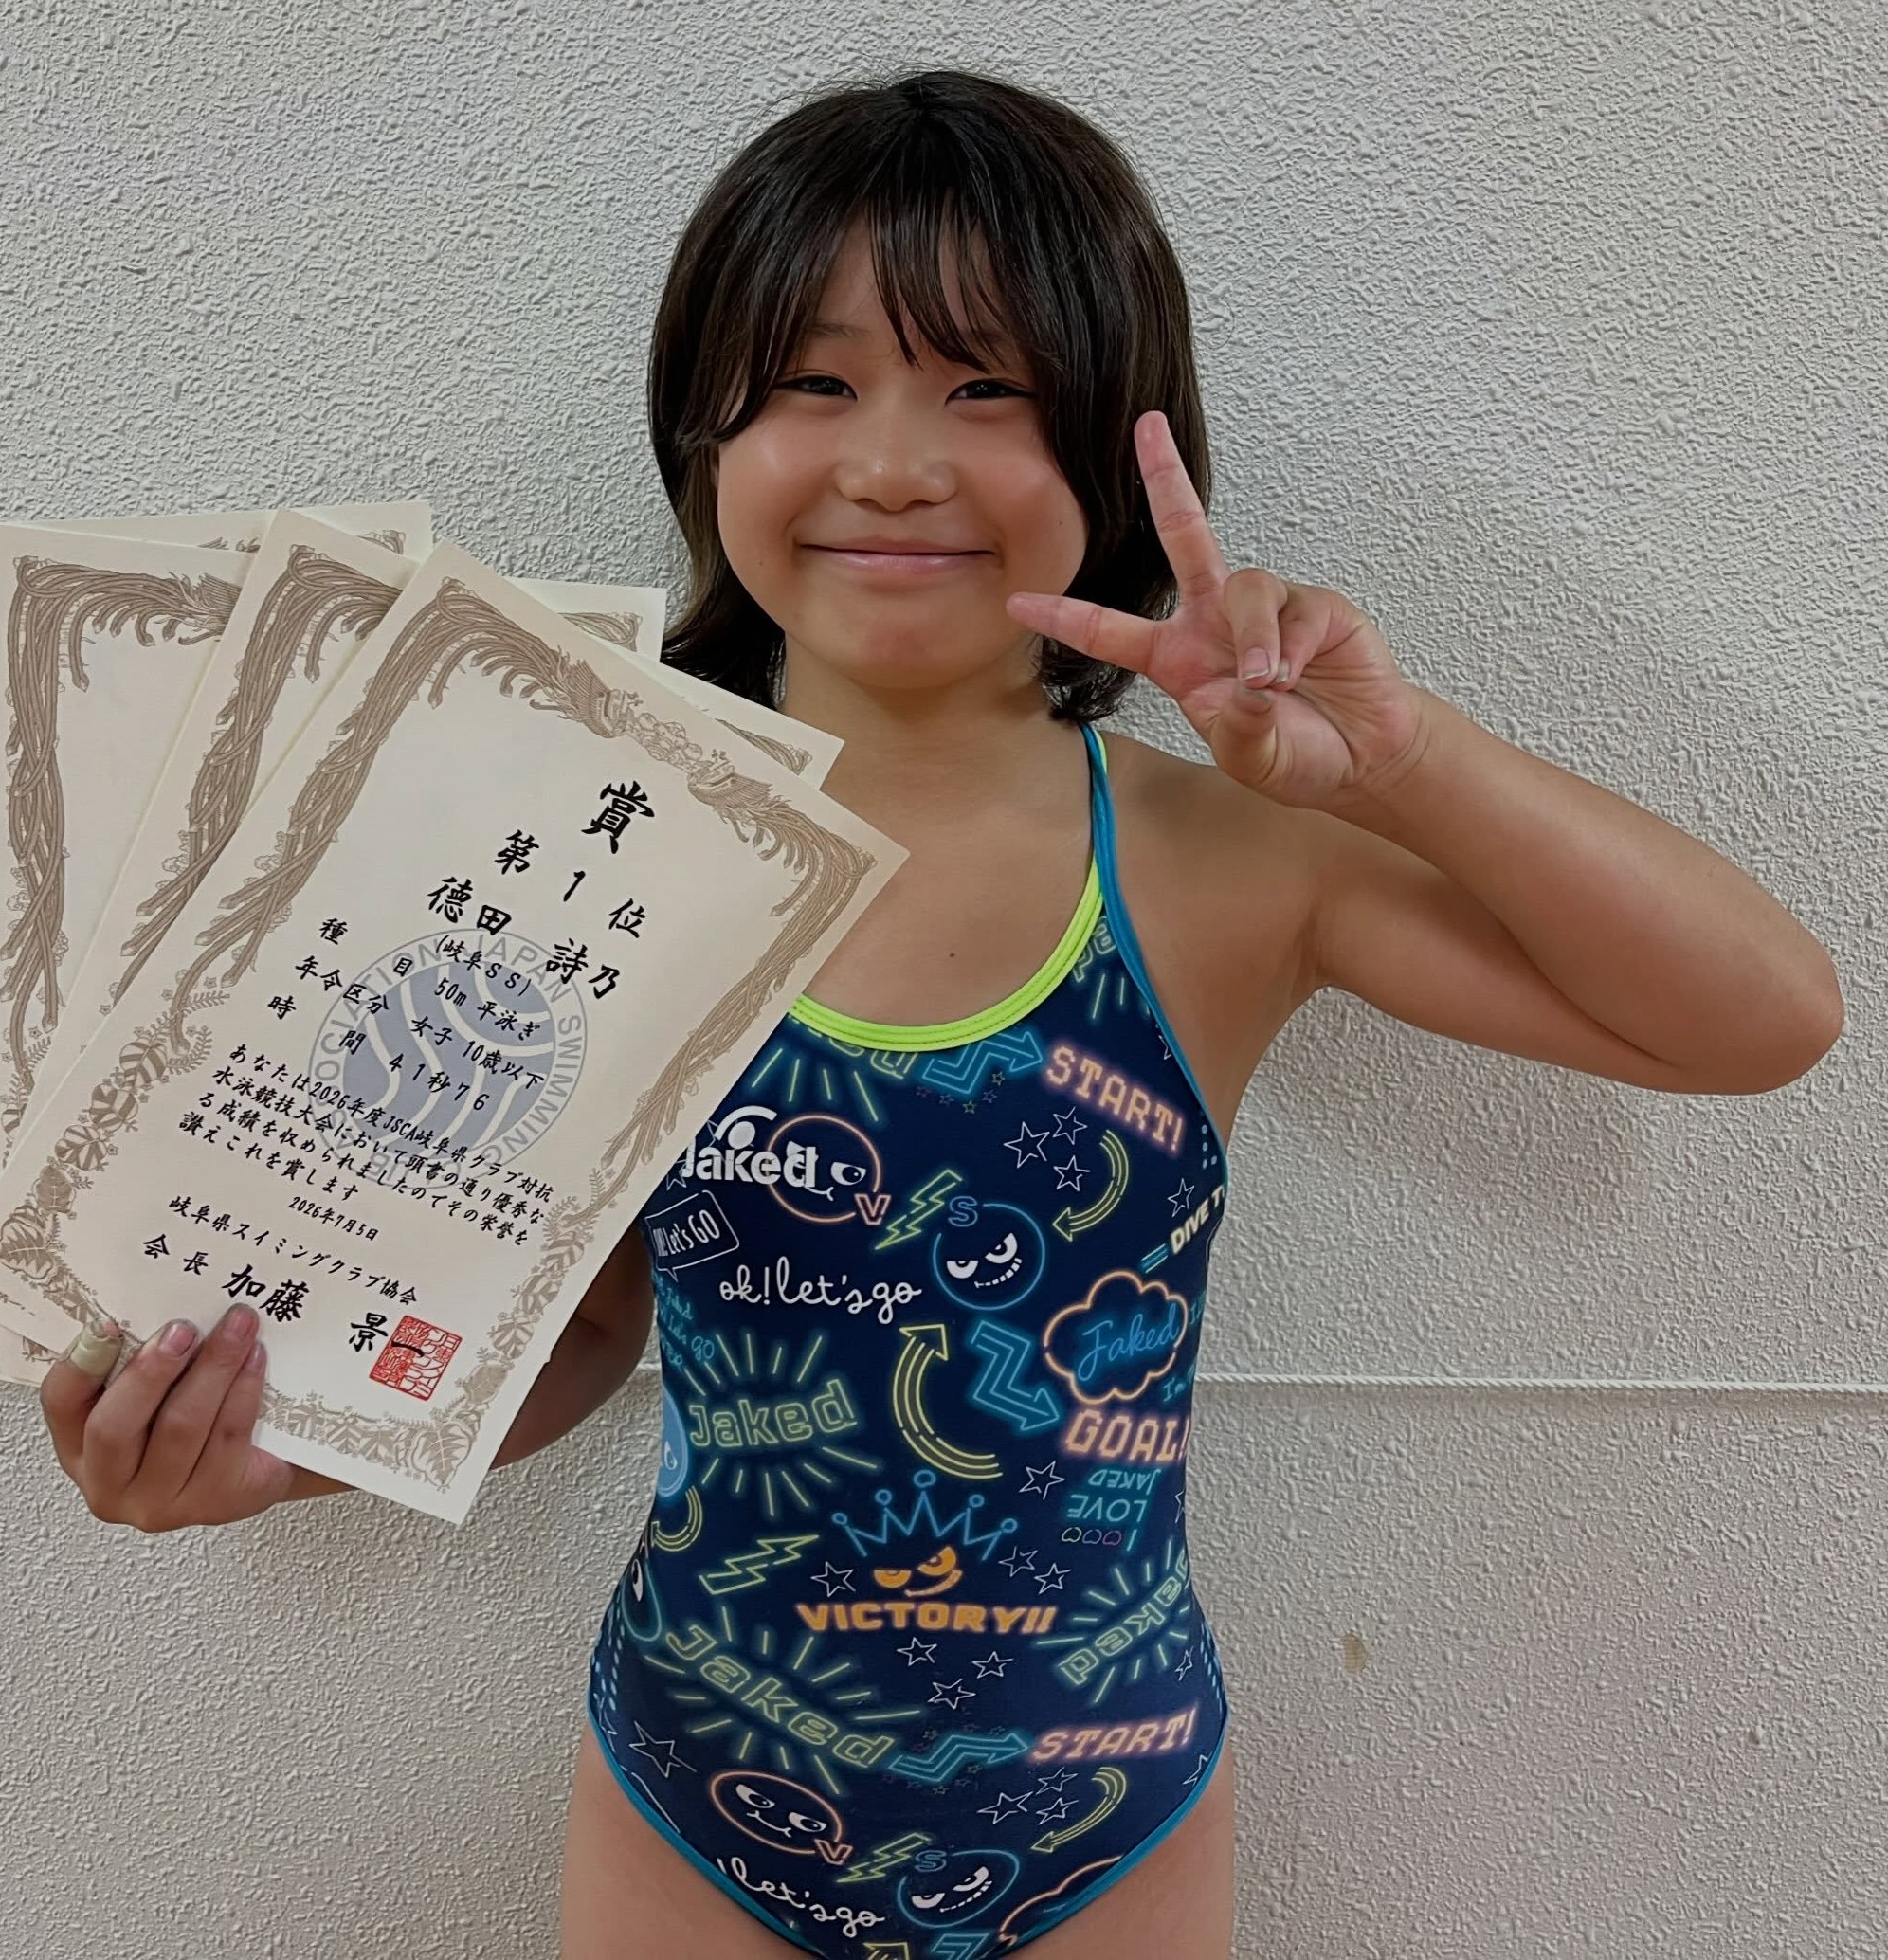 賞
第1位
徳田 詩乃
(岐阜SS)
種目 50m 平泳ぎ
年令区分 女子 10歳以下
時間 41秒76
あなたは2026年度JSCA岐阜県クラブ対抗
水泳競技大会において頭書の通り優秀な
る成績を収められましたのでその栄誉を
讃えこれを賞します
2026年7月5日
岐阜県スイミングクラブ協会
会長 加藤 景一
JAPAN SWIMMING
START!
Jaked
V
S
Let's GO
ok! let's go
DIVE
Jaked
Jaked
GOAL!
I LOVE JAKED
VICTORY!!
Jaked
Jaked
START!
V
S
let's go